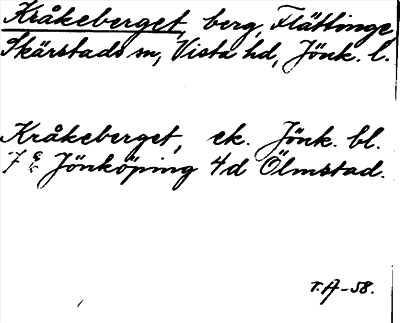 Kråkeberget, berg, Flättinge,
Skärstads sn, Vista hd, Jönk. l.
Kråkeberget, ek. Jönk. bl.
7 Jönköping 4d Ölmstad.
T.A-58.